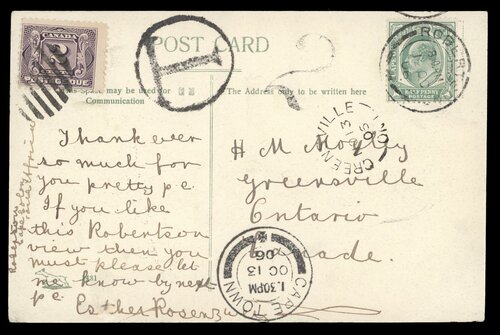 CANADA
2
POSTAGE DUE
POST CARD
T
2
ROBERT
HALFPENNY
POSTAGE
This Space may be used for
Communication
The Address only to be written here
Thank ever
so much for
you pretty p.c.
If you like
this Robertson
view then you
must please let
me know by next
p.c.
Esther
Robertson
Cape Colony
H M Mosley
Greensville
Ontario
Canade.
GREENSVILLE
ONT
13
06
CAPE TOWN
1.30PM
OC 13
06